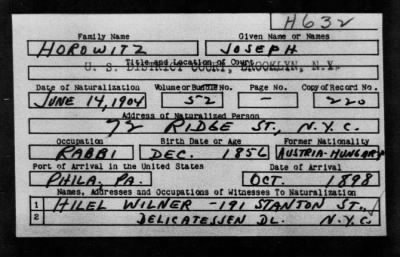 H632
Family Name Given Name or Names
HOROWITZ JOSEPH
Title and Location of Court
U. S. DISTRICT COURT, BROOKLYN, N.Y.
Date of Naturalization Volume or Bundle No. Page No. Copy of Record No.
JUNE 14, 1904 52 - 220
Address of Naturalized Person
72 RIDGE ST., N.Y.C.
Occupation Birth Date or Age Former Nationality
RABBI DEC. 1856 AUSTRIA-HUNGARY
Port of Arrival in the United States Date of Arrival
PHILA. PA. OCT. 1898
Names, Addresses and Occupations of Witnesses To Naturalization
1 HILEL WILNER - 191 STANTON ST.,
2 DELICATESSEN DL. N.Y.C.